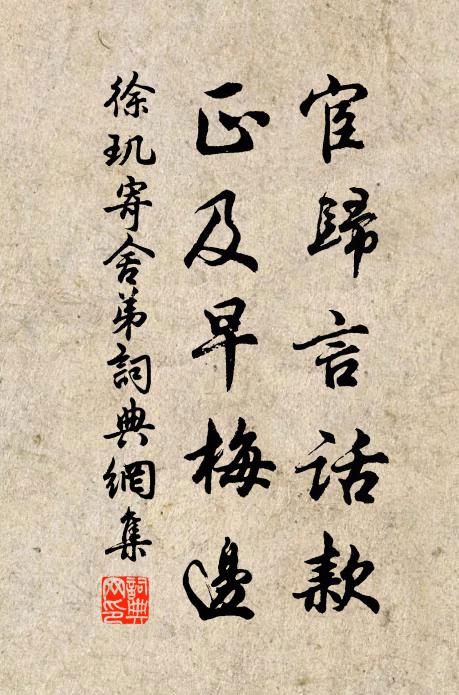 宦歸言話款
正及早梅邊
徐玑寄舍弟詞典網集
詞典網印